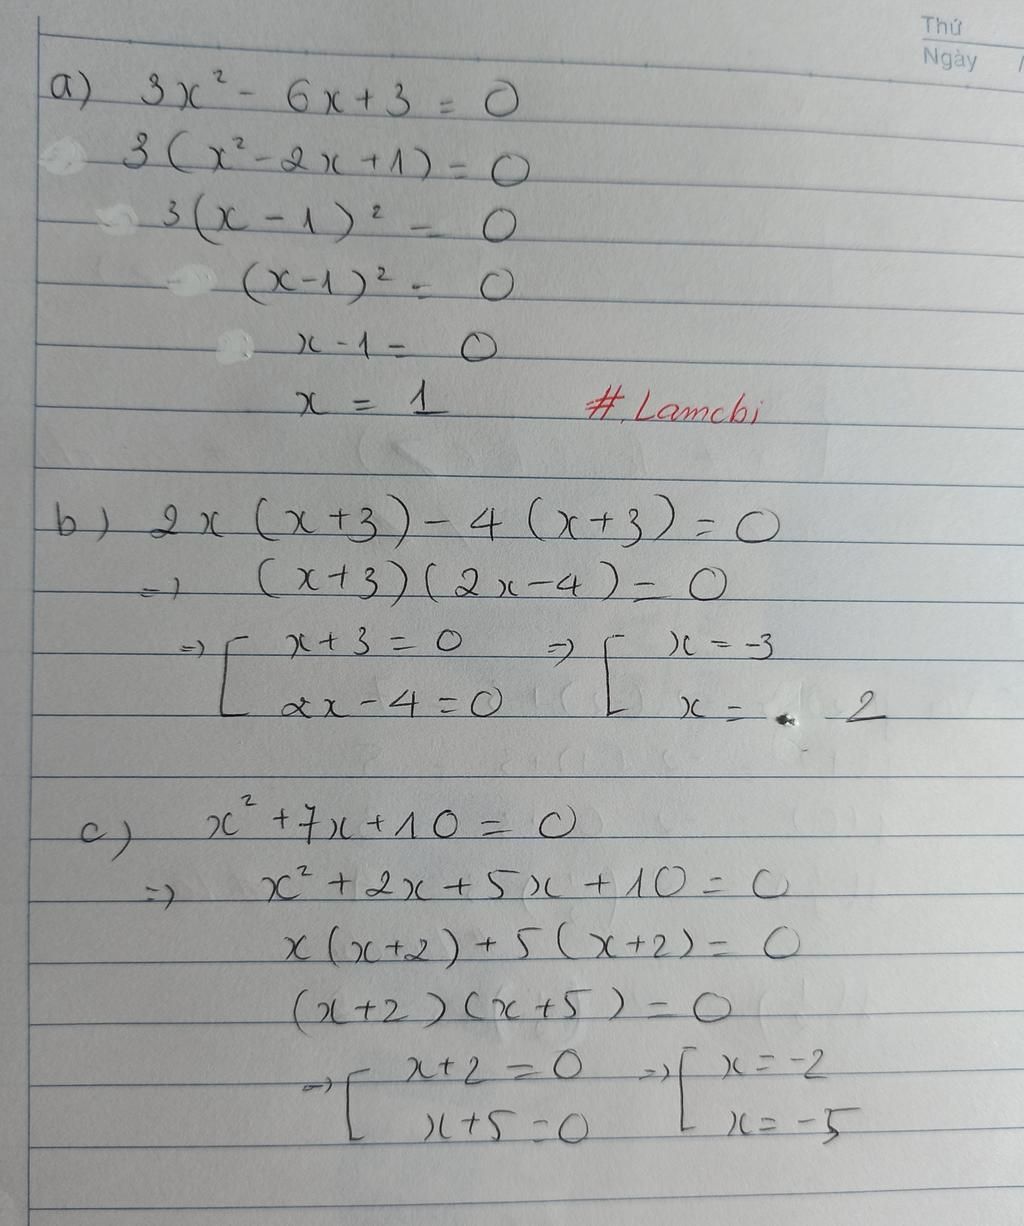 Thứ
Ngày /
a) 3x² - 6x + 3 = 0
3(x² - 2x + 1) = 0
3(x - 1)² = 0
(x-1)² = 0
x - 1 = 0
x = 1 # Lamchi
b) 2x (x+3) - 4 (x+3) = 0
=> (x+3)(2x-4) = 0
=> [ x+3 = 0 => [ x = -3
2x - 4 = 0 x = . 2
c) x² + 7x + 10 = 0
=> x² + 2x + 5x + 10 = 0
x(x+2) + 5(x+2) = 0
(x+2)(x+5) = 0
=> [ x+2 = 0 => [ x = -2
x+5 = 0 x = -5